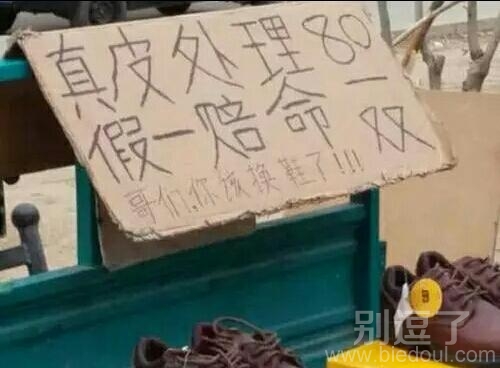 真皮处理80
假一赔命一双
哥们,你该换鞋了!!!
别逗了
www.biedoul.com